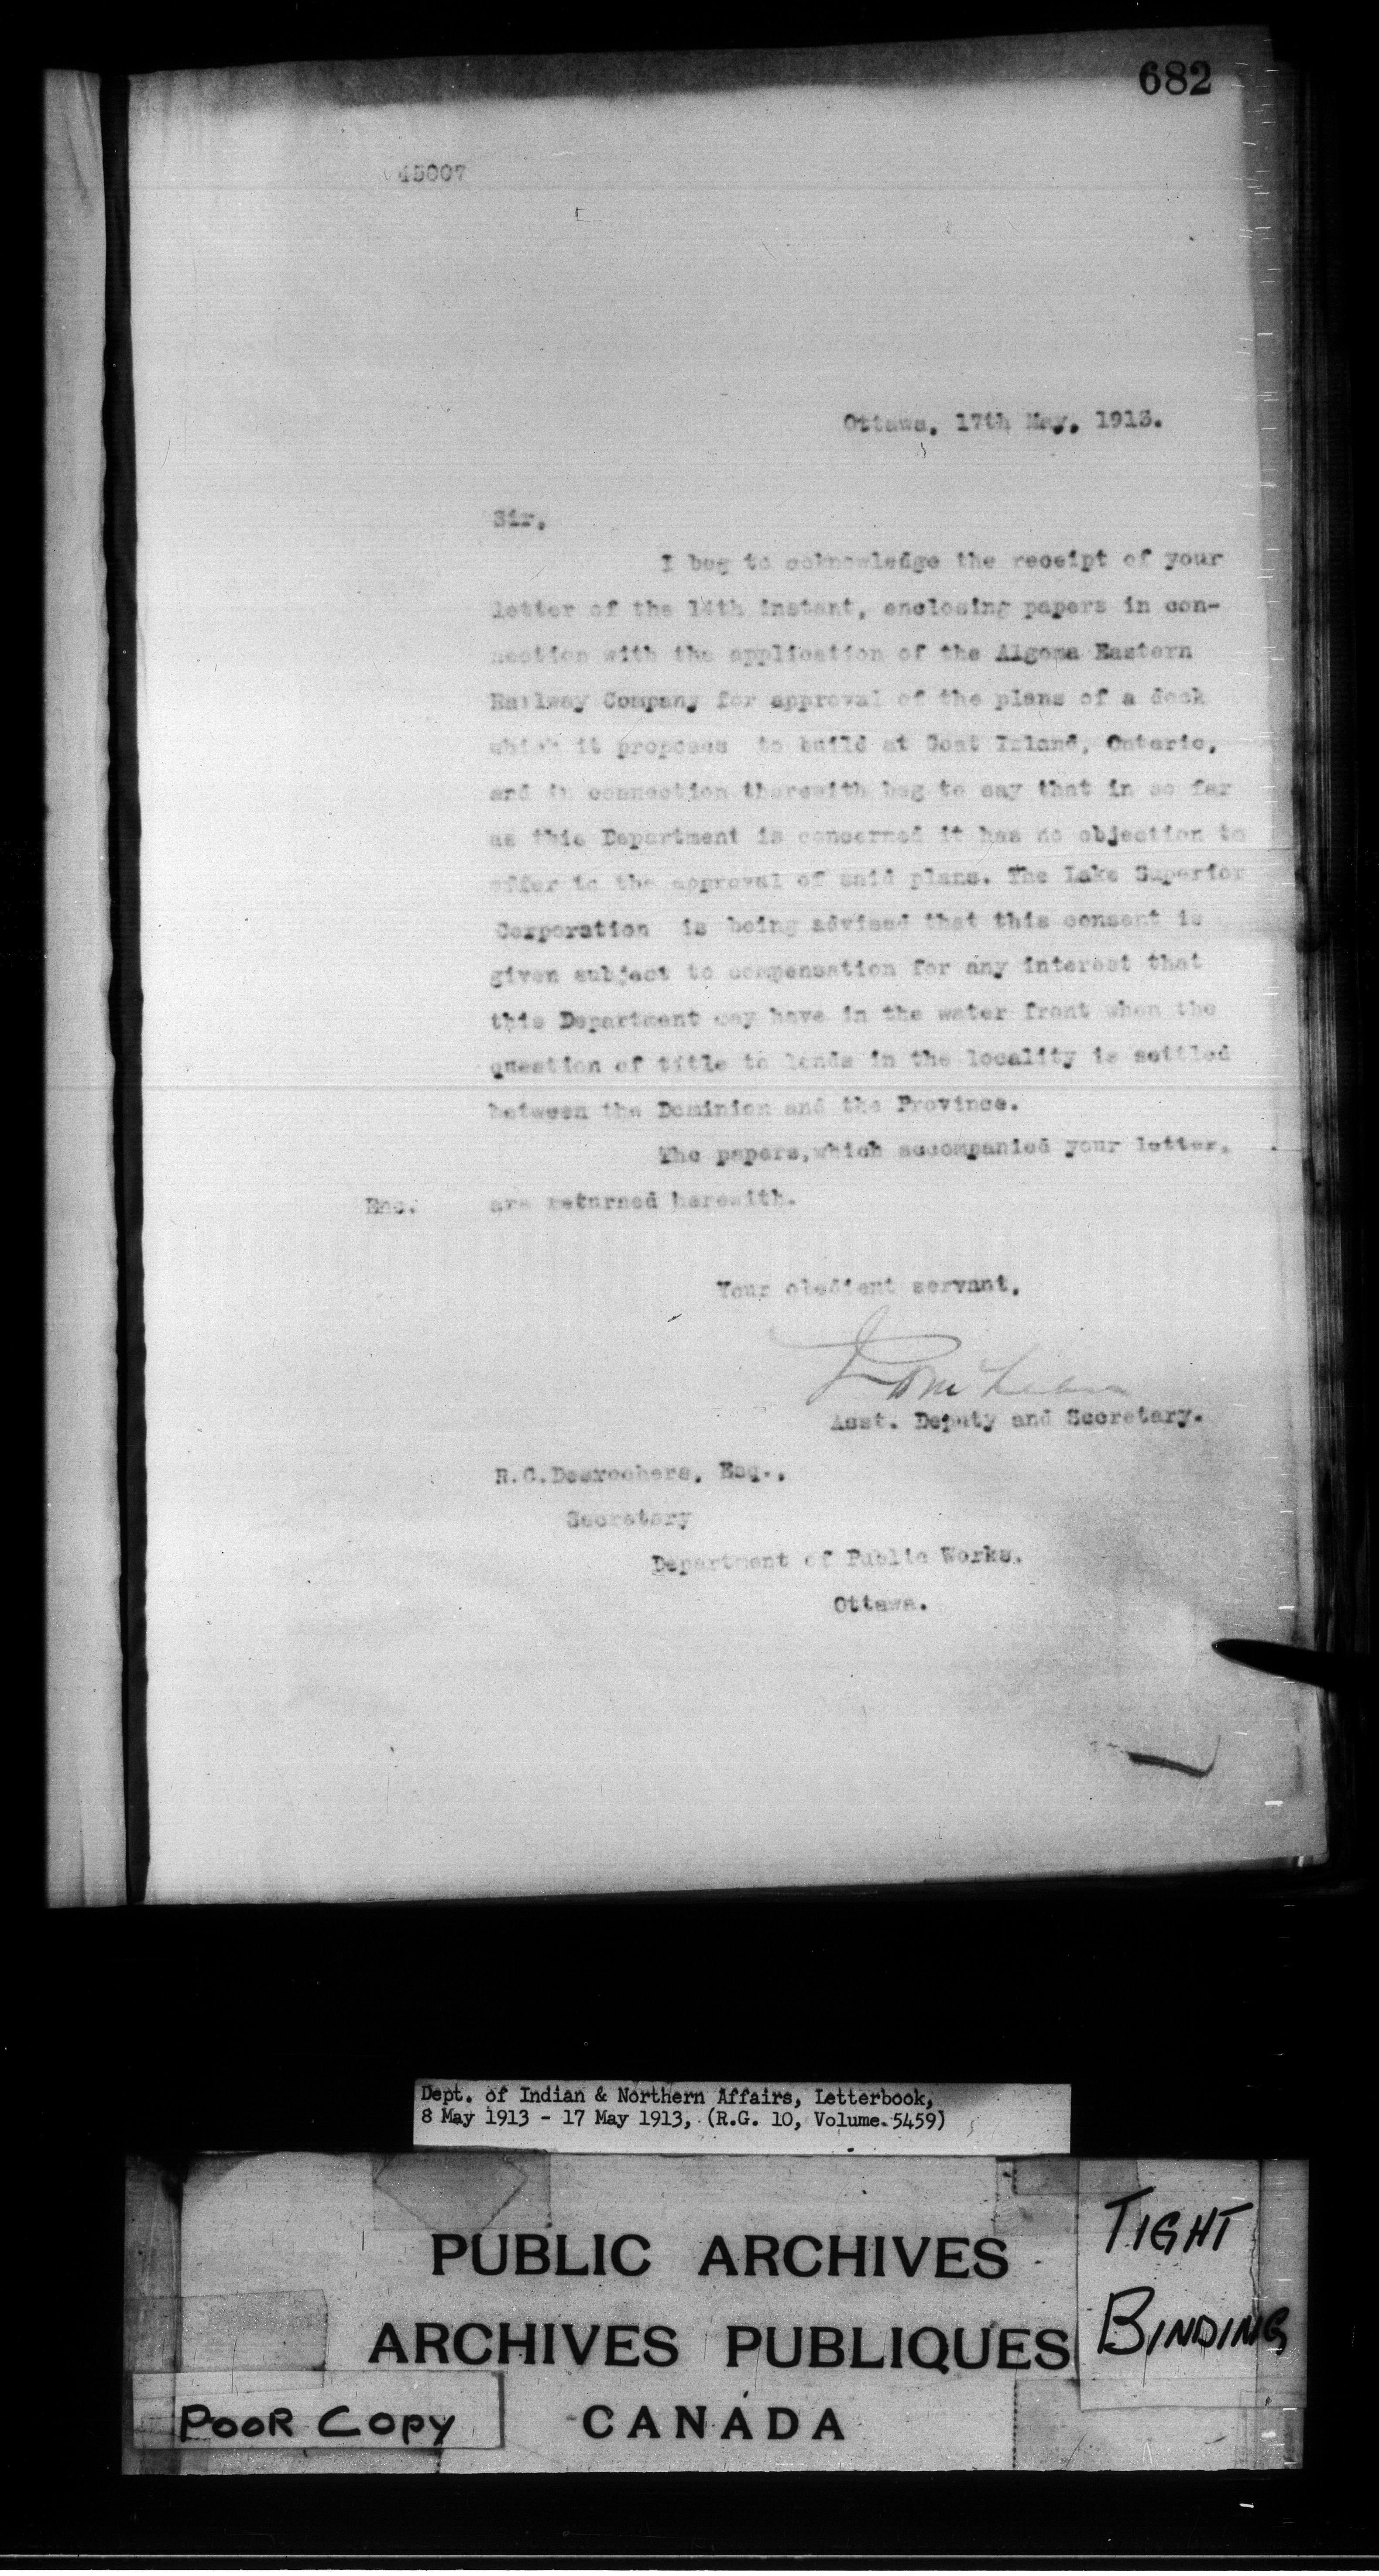 682
45007
Ottawa, 17th May, 1913.
Sir,
I beg to acknowledge the receipt of your
letter of the 14th instant, enclosing papers in con-
nection with the application of the Algoma Eastern
Railway Company for approval of the plans of a dock
which it proposes to build at Goat Island, Ontario,
and in connection therewith beg to say that in so far
as this Department is concerned it has no objection to
offer to the approval of said plans. The Lake Superior
Corporation is being advised that this consent is
given subject to compensation for any interest that
this Department may have in the water front when the
question of title to lands in the locality is settled
between the Dominion and the Province.
The papers, which accompanied your letter,
Enc. are returned herewith.
Your obedient servant,
J D McLean
Asst. Deputy and Secretary.
R.C.Desrochers, Esq.,
Secretary
Department of Public Works,
Ottawa.
Dept. of Indian & Northern Affairs, Letterbook,
8 May 1913 - 17 May 1913, (R.G. 10, Volume. 5459)
PUBLIC ARCHIVES
ARCHIVES PUBLIQUES
CANADA
TIGHT
BINDING
POOR COPY